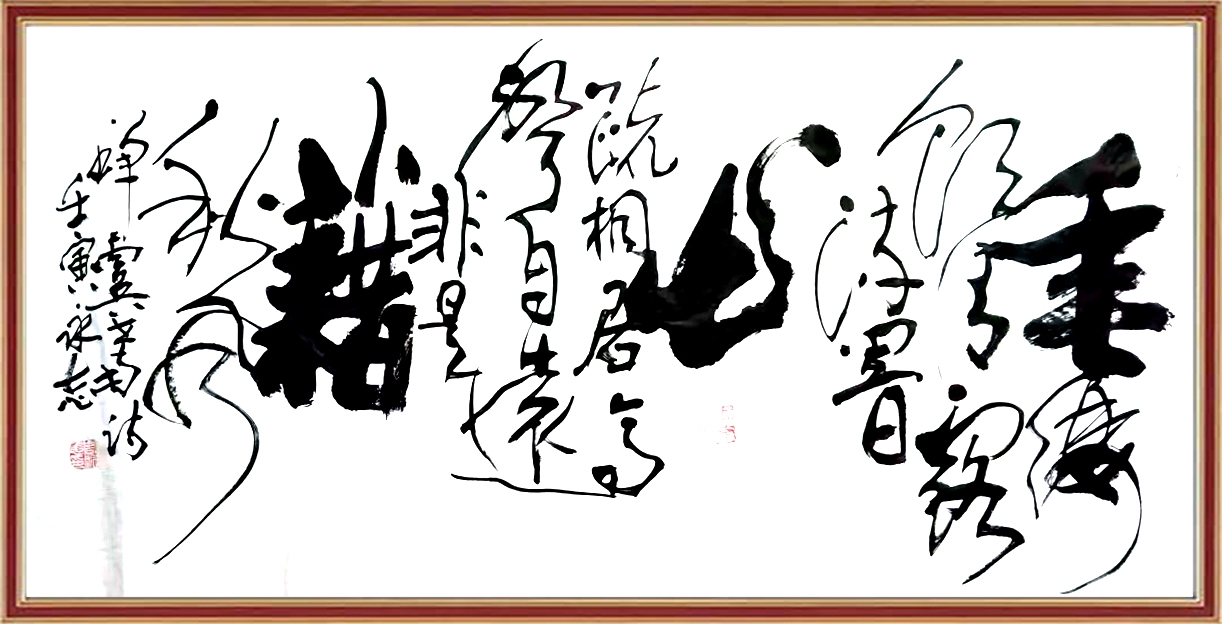 垂緌
飲清露
流響
出
疏桐居高
聲自遠
非是
藉
秋風
蟬虞世南詩
壬寅永志